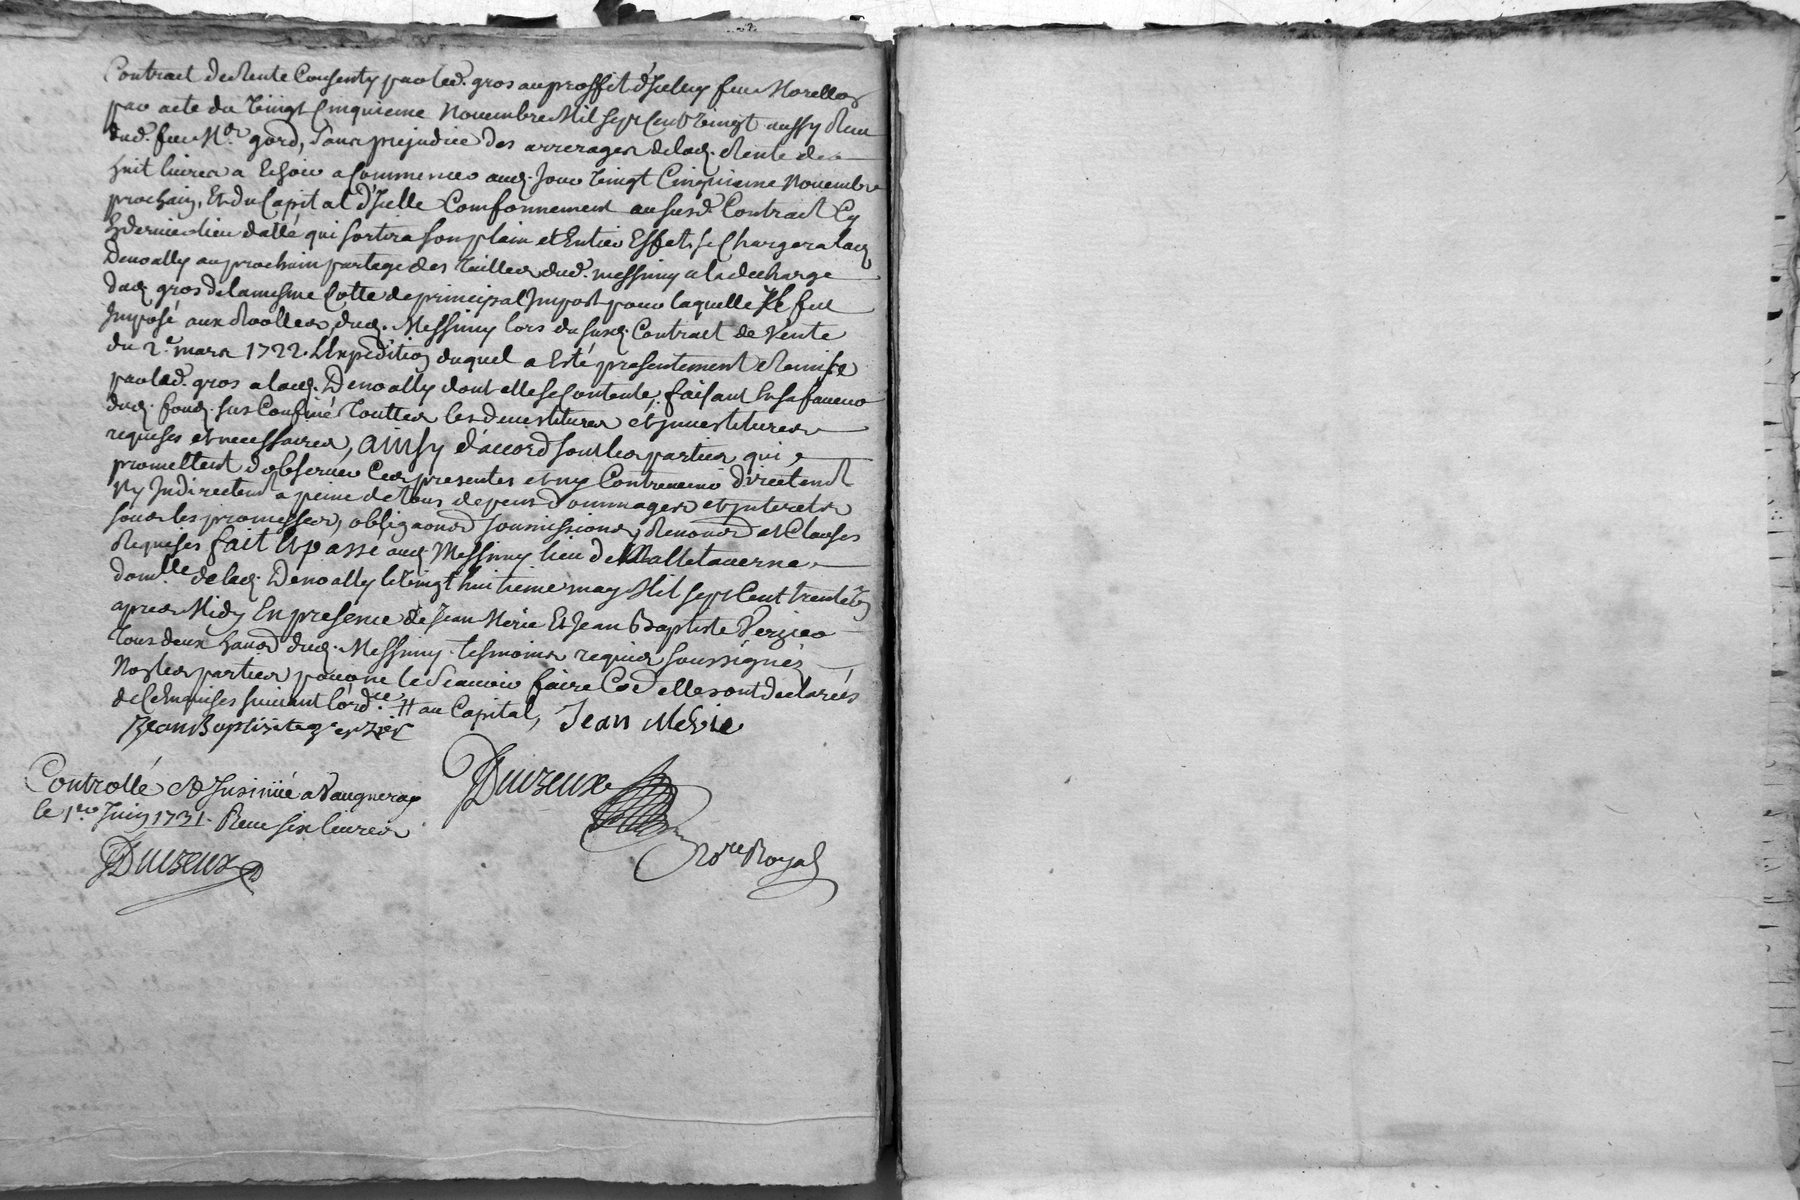 Contract de Rente Consenty par led. gros au proffit d'Icelluy feu Morellon
par acte du vingt Cinquieme Novembre Mil sept Cent vingt aussy Receu
dud. feu Mr. gord, sans prejudice des arrerages delad. Rente de
huit livres a Echoir a Commencer aud. Jour vingt Cinquieme Novembre
prochain, Et du Capital d'Icelle Comformement au susd. Contract Cy
dernier lieu datté qui sortira son plain et Entier Effet, se Chargera lad.
Denoally au prochain partage des Tailles dud. messimy a la decharge
dud. gros de la mesme Cotte de principal Impost pour laquelle Il fut
Imposé aux Roolles dud. Messimy lors du susd. Contract de Vente
du 2e. mars 1722. L'Expedition duquel a Esté presentement Remise
par led. gros a lad. Denoally dont elle se Contente, faisant En sa faveur
dud. fond. sus Confiné Touttes les devestitures et Investitures
requises et necessaires, ainsy d'accord sont les parties qui
promettent d'observer Ces presentes et ny Contrevenir directemt.
Ny Indirectemt. a peine de tous depens dommages et Interets
sous les promesses, obligaons soumissions, Renons. et Clauses
Requises fait Et passé aud. Messimy lieu de Malletaverne
domlle. de lad. Denoally le vingt huitieme may Mil sept Cent trente Un
apres Midy En presence de Jean Merie Et Jean Baptiste Verzier
tous deux habd. dud. Messimy tesmoins requis soussignés
Non les parties pour ne le Scauoir faire Co. elles ont declarées
de Ce Enquises suivant l'ordce. # au Capital,
Jean Baptiste Verzier Jean Merie
Duvzeux
Controllé Et Insinüé a Vaugneray
le 1er. Juin 1731. Receu six livres
Duvzeux
Nore Royal